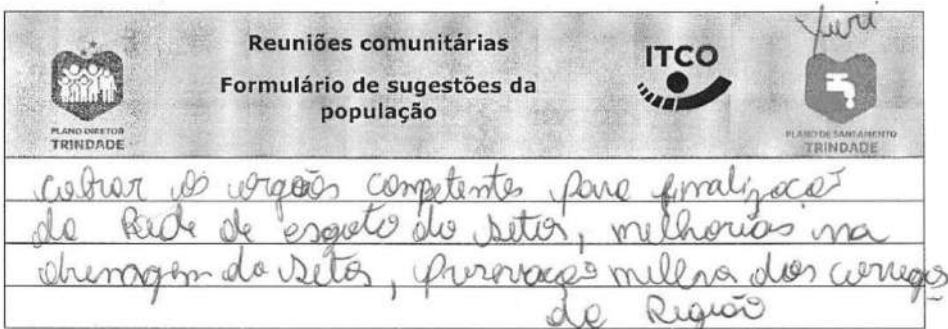 Yuri
Reuniões comunitárias
Formulário de sugestões da
população
ITCO
PLANO DIRETOR
TRINDADE
PLANO DE SANEAMENTO
TRINDADE
cobrar os orgãos competentes para finalização
da Rede de esgoto do setor, melhorias na
drenagem do setor, preservação melhora dos corregos
da Região